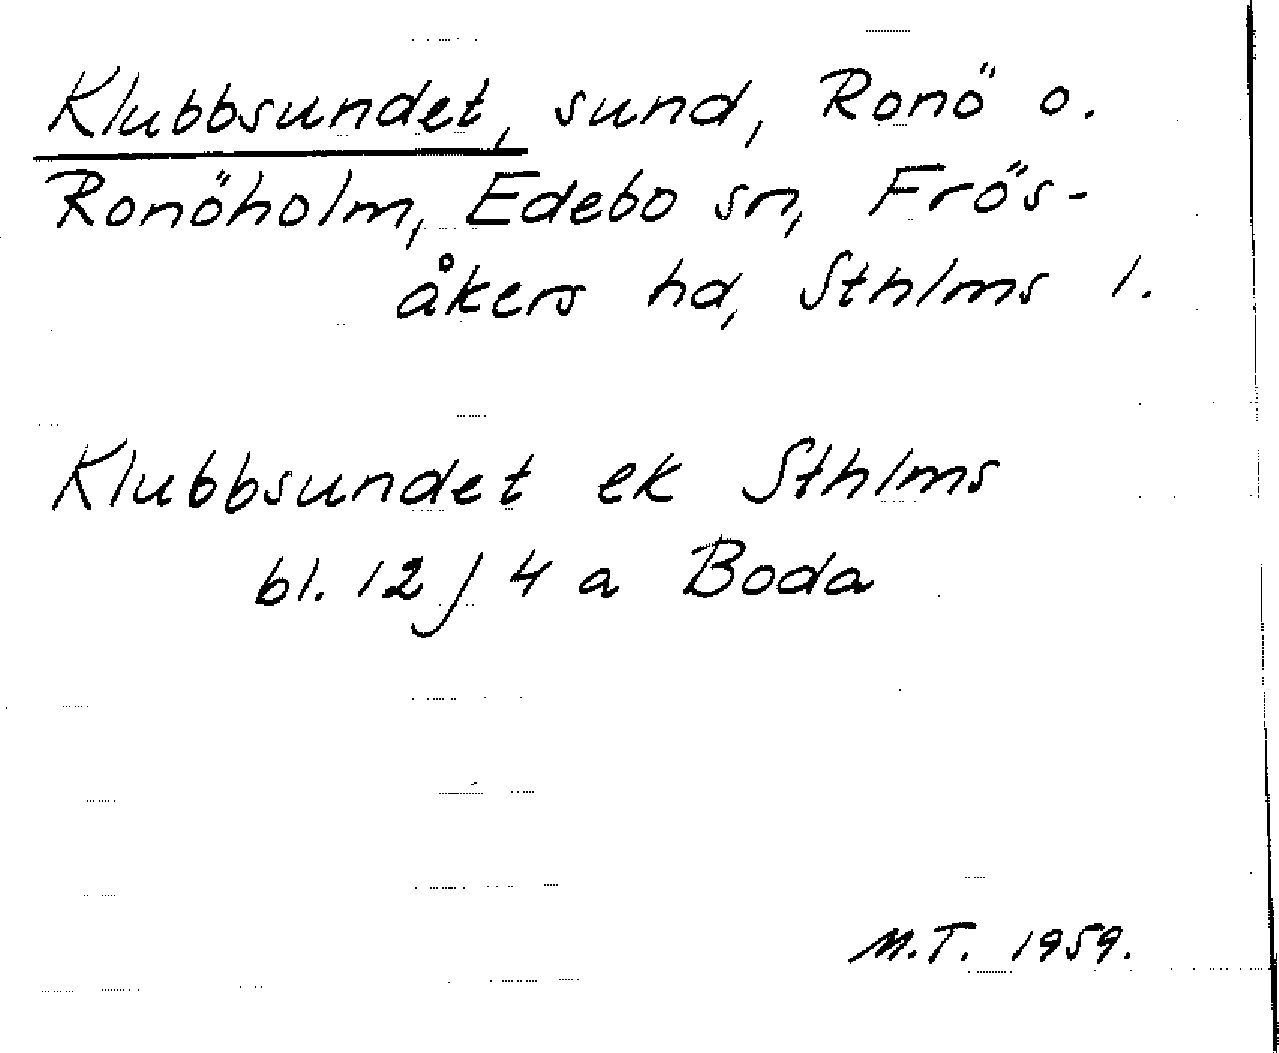 Klubbsundet, sund, Ronö o.
Ronöholm, Edebo sn, Frös-
åkers hd, Sthlms l.
Klubbsundet ek Sthlms
bl. 12 j 4 a Boda
M.T. 1959.